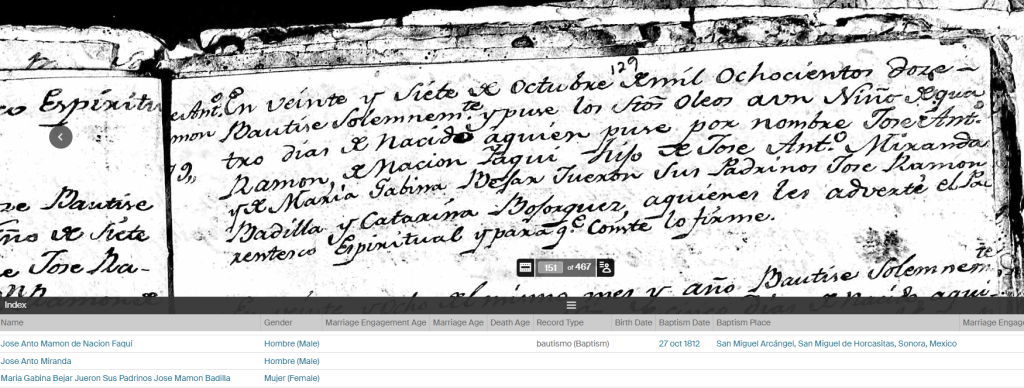 129
co Espiritu
En veinte y Siete de Octubre de mil Ochocientos doze
e Ant.º
Bautise Solemnem.te y puse los Stos Oleos a un Niño de qua
mon
tro dias de Nacido aquien puse por nombre Jose Ant.º
Ramon, de Nacion Yaqui hijo de Jose Ant.º Miranda
y de Maria Gabina Bejar Fueron Sus Padrinos Jose Ramon
ze Bautise
Badilla y Catarina Bojorquez, aquienes les adverti el Pa
ño de Siete
rentesco Espiritual y para q.e Conste lo firme.
e Jose Ra-
te
el mismo mes y año Bautise Solemnem
151 of 467
Index
Name Gender Marriage Engagement Age Marriage Age Death Age Record Type Birth Date Baptism Date Baptism Place Marriage Engage
Jose Anto Mamon de Nacion Faqui Hombre (Male) bautismo (Baptism) 27 oct 1812 San Miguel Arcángel, San Miguel de Horcasitas, Sonora, Mexico
Jose Anto Miranda Hombre (Male)
Maria Gabina Bejar Jueron Sus Padrinos Jose Mamon Badilla Mujer (Female)